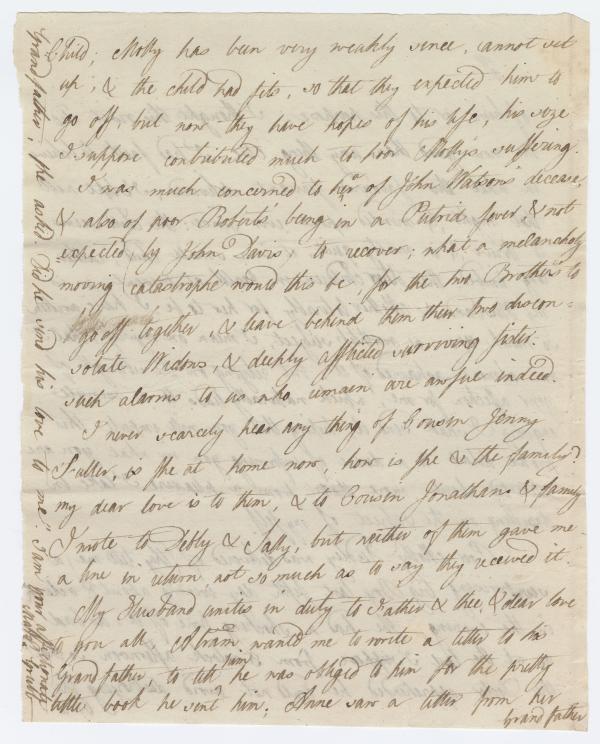 Child; Molly has been very weakly since, cannot set
up, & the child had fits, so that they expected him to
go off, but now they have hopes of his life, his size
I suppose contributed much to poor Mollys suffering.
I was much concerned to hear of John Watson's decease,
& also of poor Robert's being in a Putrid fever, & not
expected by John Davis, to recover; what a melancholy
moving catastrophe would this be, for the two Brothers to
go off together, & leave behind them their two discon=
solate Widows, & deeply afflicted surviving sister.
such alarms to us who remain are awful indeed.
I never scarcely hear any thing of Cousin Jenny
Fuller, is she at home now, how is she & the family?
my dear love is to them, & to Cousin Jonathans & family
I wrote to Debby & Sally, but neither of them gave me
a line in return not so much as to say they received it.
My Husband unites in duty to Father & thee, & dear love
to you all Abram wanted me to write a letter to his
Grandfather, to tell him he was obliged to him for the pretty
little book he sent him; Anne saw a letter from her
Grand father
Grandfather, she asked. "Did he send his love to me". I am your affectionate